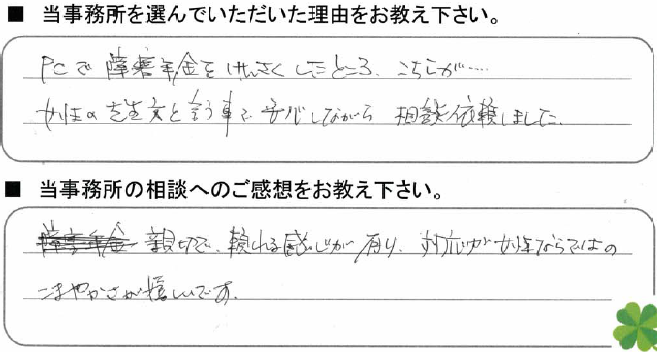 ■ 当事務所を選んでいただいた理由をお教え下さい。
PCで障害年金をけんさくしたところ、こちらが……
女性の先生方と言う事で安心しながら相談依頼しました。
■ 当事務所の相談へのご感想をお教え下さい。
障害年金 親切で、頼れる感じが有り、対応が女性ならではの
こまやかさが嬉しいです。